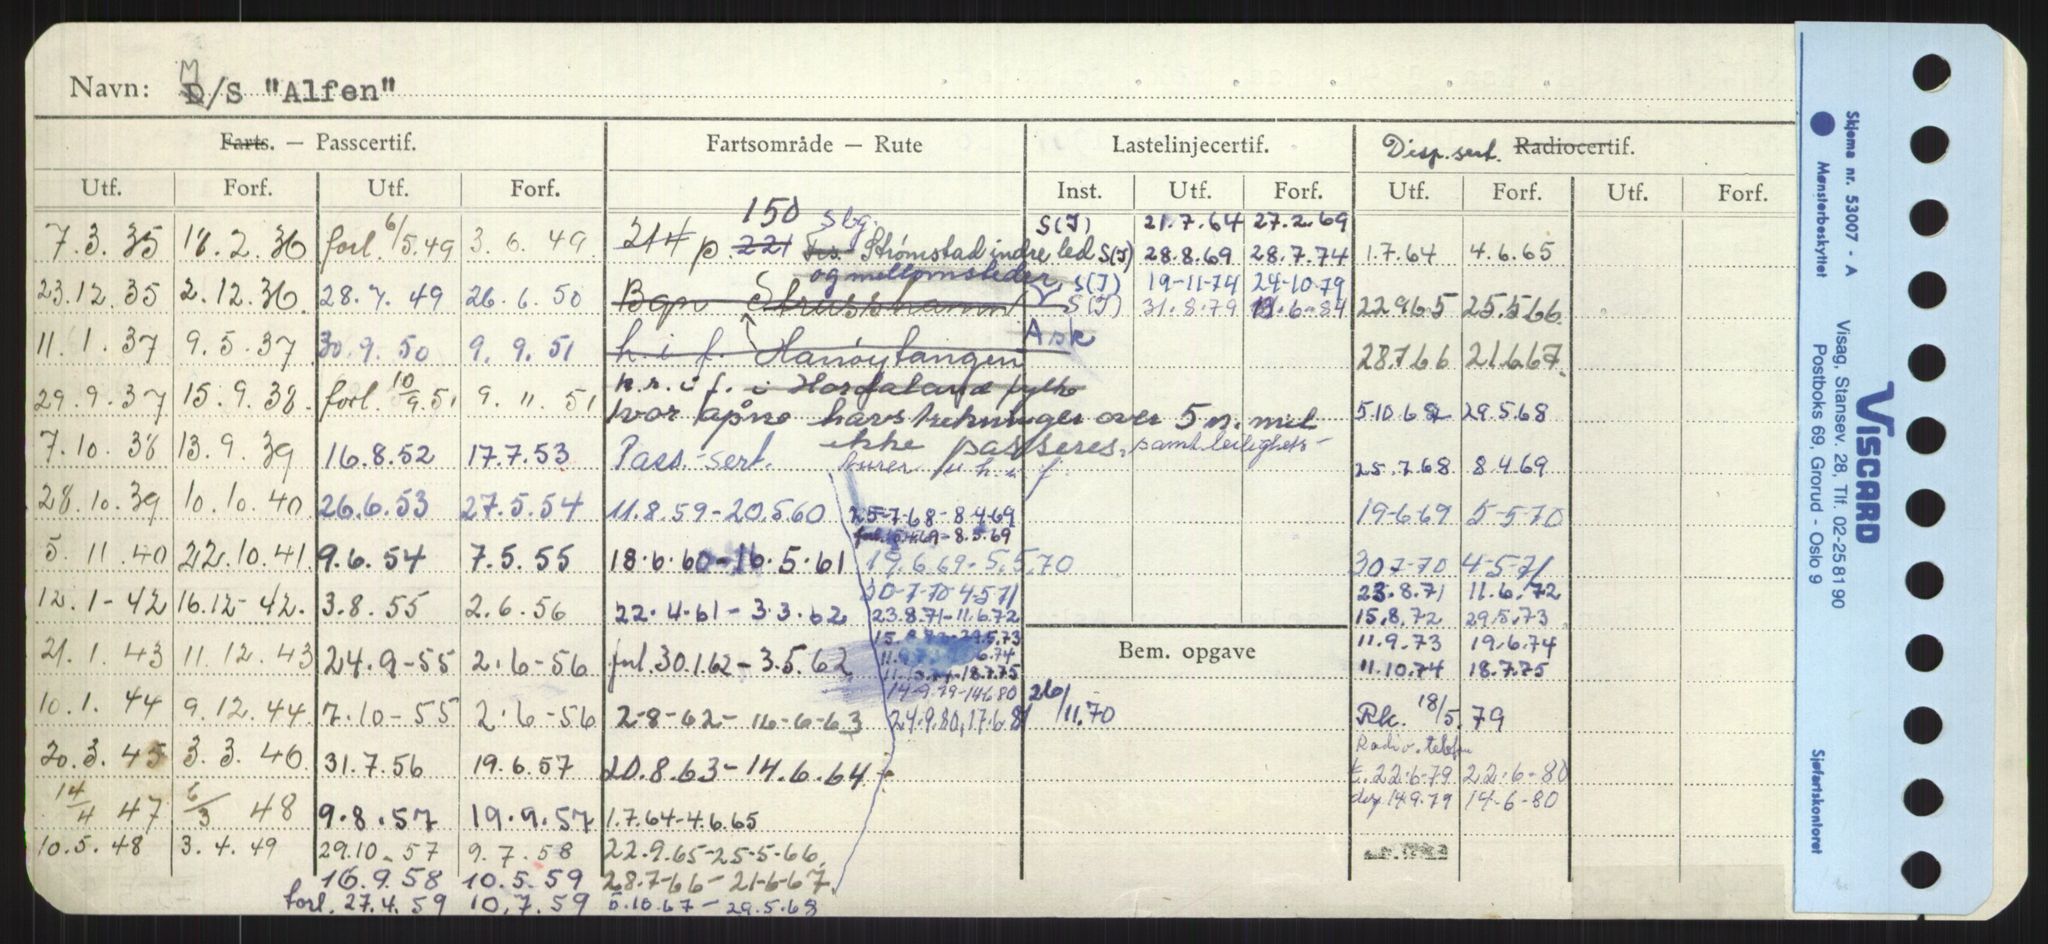 Navn: M/S "Alfen"
Farts. — Passcertif. Fartsområde — Rute Lastelinjecertif. Disp.sert. Radiocertif.
Utf. Forf. Utf. Forf. Inst. Utf. Forf. Utf. Forf. Utf. Forf.
150 Sbg. S(J) 21.7.64 27.2.69
7.3.35 18.2.36 forl. 6/5.49 3.6.49 214 p 221 Strømstad indre led S(J) 28.8.69 28.7.74 1.7.64 4.6.65
og mellomsteder S(J) 19-11-74 24-10-79
23.12.35 2.12.36. 28.7.49 26.6.50 Bgn Strusshamn S(J) 31.8.79 6-84 22965 25.5.66
Ask
11.1.37 9.5.37 30.9.50 9.9.51 h.i.f. Hanøytangen 28766 21.6.67.
n.r.i f. i Hordaland fylke
29.9.37 15.9.38 forl. 10/9.51 9.11.51 hvor åpne havstrekninger over 5 n.mil 5.10.67 29.5.68
ikke passeres, samt leilighets-
7.10.38 13.9.39 16.8.52 17.7.53 Pass.-sert. turer u.h.i f. 25.7.68 8.4.69
28.10.39 10.10.40 26.6.53 27.5.54 11.8.59-20.560 25-7-68-8.4.69 19-6-69 5-5-70
forl. 10.4.69-8.5.69
5.11.40 22.10.41 9.6.54 7.5.55 18.6.60-16.5.61 19.6.69-5.5.70 307-70 4-5-71
30-7-70-4-5-71 23.8.71 11.6.72
12.1-42 16.12-42. 3.8.55 2.6.56 22.4.61-3.3.62 23.8.71-11.6.72 15.8.72 29.5.73
15.8.72-29.5.73 11.9.73 19.6.74
21.1.43 11.12.43 24.9-55 2.6-56 forl.30.1.62-3.5.62 6.74 Bem. opgave 11.10.74 18.7.75
11.10.74-18.7.75
14-9-79-14680 26/11.70
10.1.44 9.12.44 7.10-55 2.6-56 2-8-62-16-6-63 24.9.80,17.6.81 Rk. 18/5.79
Radio.telefon
20.3.45 3.3.46 31.7.56 19.6.57 20.8.63-14.6.64 t. 22.6-79 22.6-80
14/4 47 6/3 48 9.8.57 19.9.57 1.7.64-4.6.65 disp. 14.9.79 14-6-80
10.5.48 3.4.49 29.10-57 9.7.58 22.9.65-25-5-66.
16.9.58 10.5.59 28.7-66-21-6-67.
forl. 27.4.59 10.7.59 5.10.67-29.5.68
Skjema nr. 53007 - A
Mønsterbeskyttet
VISCARD
Visag, Stansev. 28, Tlf. 02-25 81 90
Postboks 69, Grorud - Oslo 9
Sjøfartskontoret